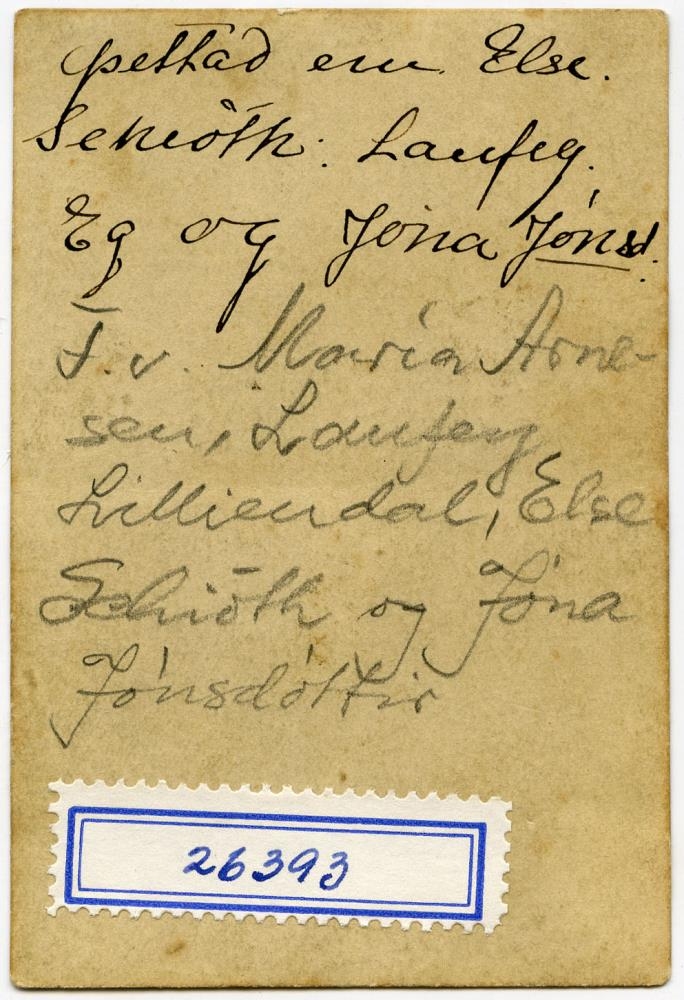 þettað eru Else.
Schiöth. Laufey.
Eg og Jóna Jónsd.
F.v. María Arne-
sen, Laufey
Lilliendal, Else
Schiöth og Jóna
Jónsdóttir
26393